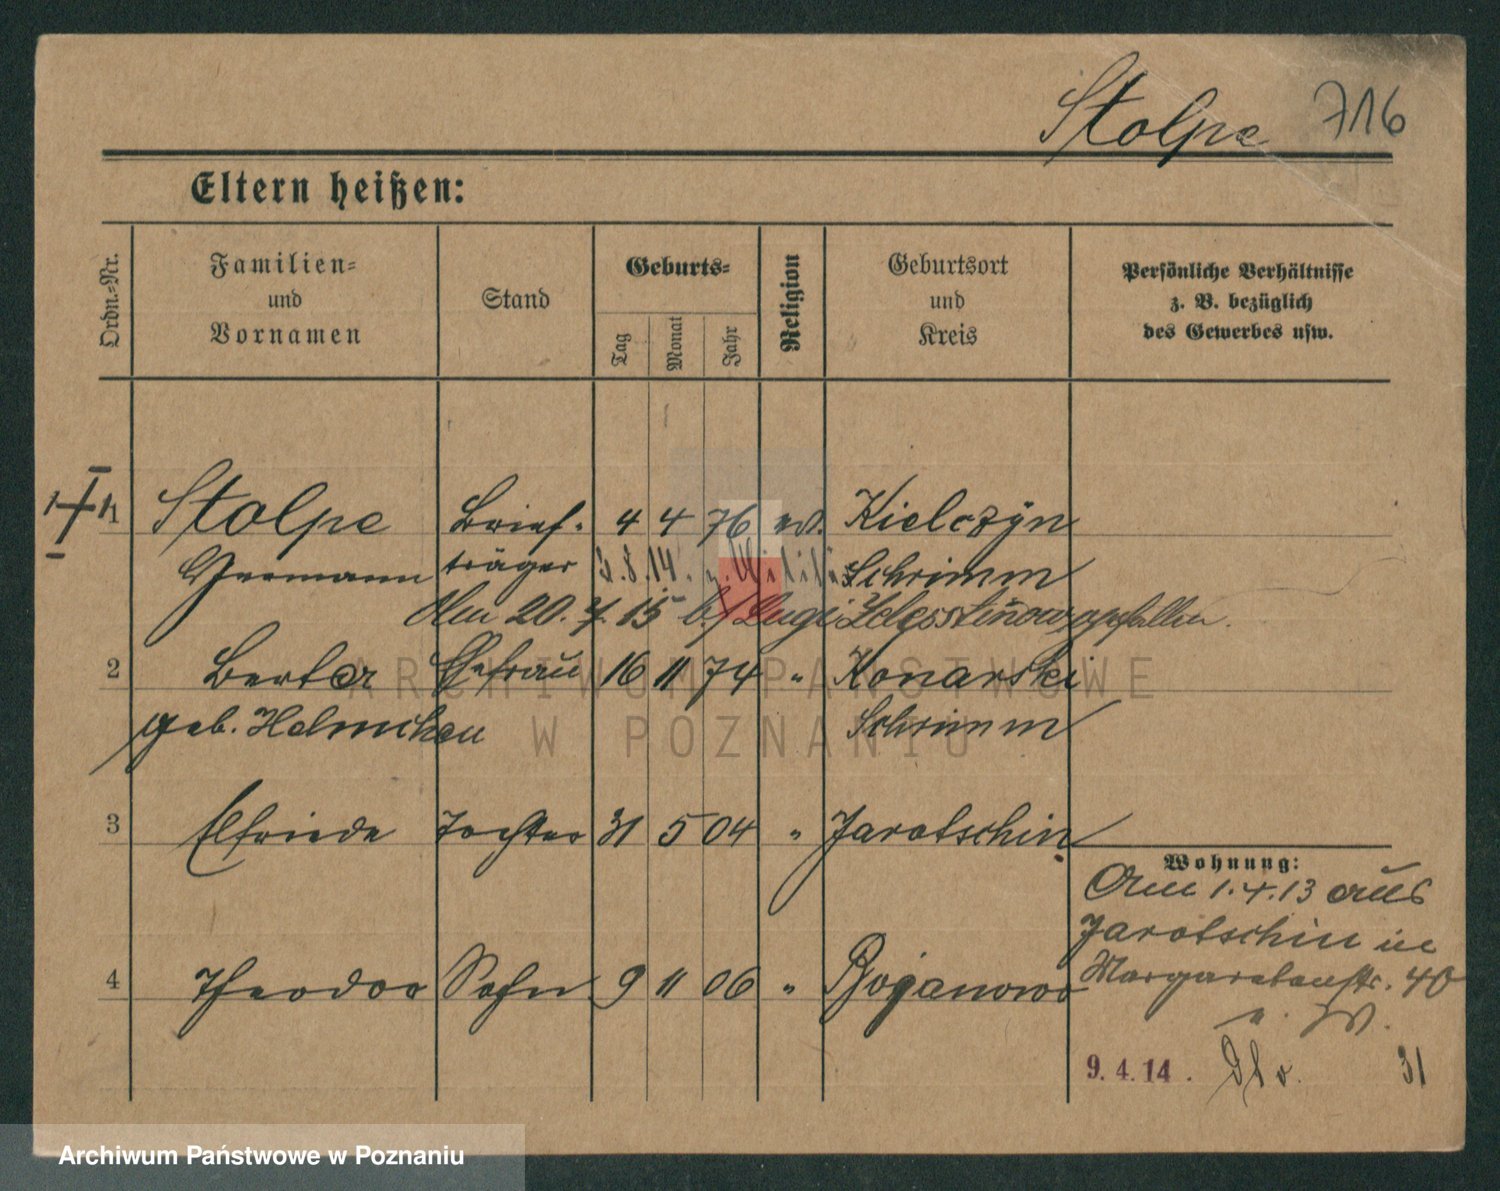 Stolpe 716
Eltern heißen:
Ordn.-Nr.
Familien-
und
Vornamen
Stand
Geburts-
Tag
Monat
Jahr
Religion
Geburtsort
und
Kreis
Persönliche Verhältnisse
z. B. bezüglich
des Gewerbes usw.
1 Stolpe Brief- 4 4 76 ev. Kielczyn
Hermann träger 3.8.14. z. Militär Schrimm
Am 20. 7. 15 b/ gefallen.
2 Berta Ehefrau 16 11 74 " Konarski
geb. Helmchen Schrimm
3 Elfriede Tochter 31 5 04 " Jarotschin
Wohnung:
Am 1.4.13 aus
Jarotschin in
4 Theodor Sohn 9 11 06 " Boganowo
Margaretenstr. 40
9.4.14. 31
ARCHIWUM PAŃSTWOWE
W POZNANIU
Archiwum Państwowe w Poznaniu